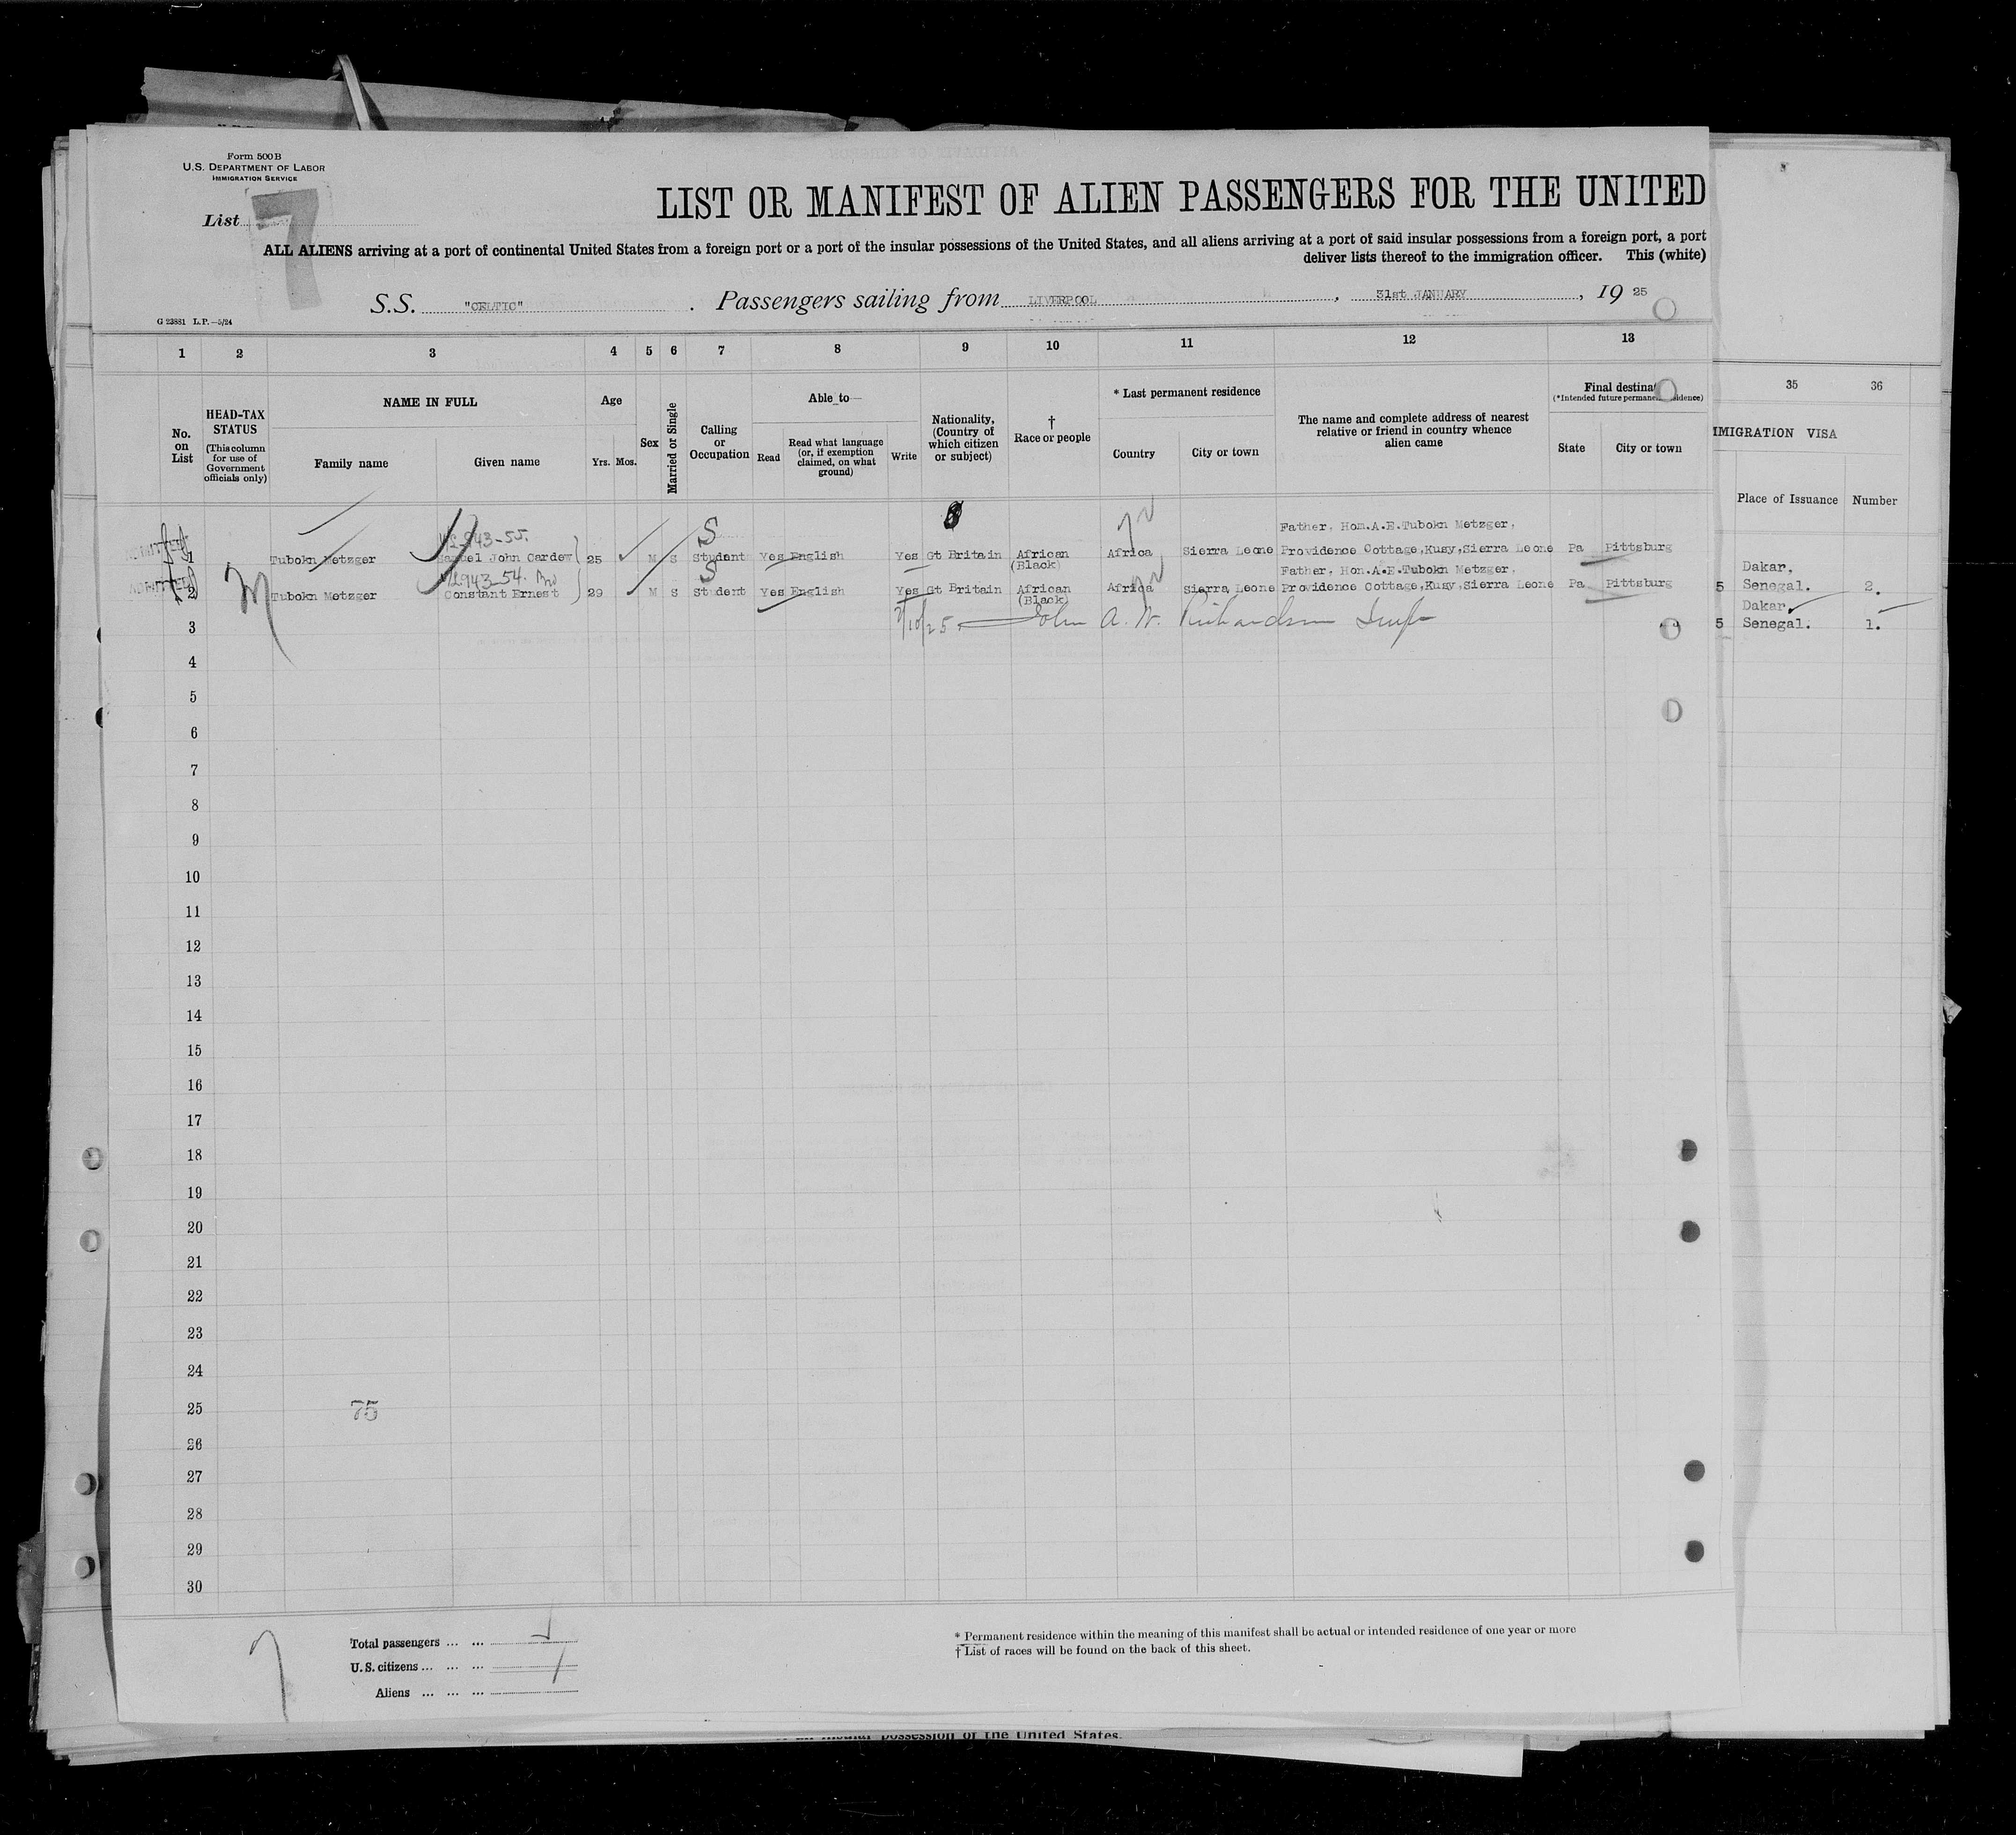 Form 500B
U.S. DEPARTMENT OF LABOR
IMMIGRATION SERVICE
List 7
LIST OR MANIFEST OF ALIEN PASSENGERS FOR THE UNITED
ALL ALIENS arriving at a port of continental United States from a foreign port or a port of the insular possessions of the United States, and all aliens arriving at a port of said insular possessions from a foreign port, a port
deliver lists thereof to the immigration officer. This (white)
S.S. "CELTIC" . Passengers sailing from LIVERPOOL , 31st JANUARY , 19 25
G 23881 L.P.—5/24
1 2 3 4 5 6 7 8 9 10 11 12 13
35 36
No. on List
HEAD-TAX STATUS
(This column for use of Government officials only)
NAME IN FULL
Family name
Given name
Age
Yrs. Mos.
Sex
Married or Single
Calling or Occupation
Able to
Read
Read what language (or, if exemption claimed, on what ground)
Write
Nationality, (Country of which citizen or subject)
† Race or people
* Last permanent residence
Country
City or town
The name and complete address of nearest relative or friend in country whence alien came
Final destina
(*Intended future perman idence)
State
City or town
IMMIGRATION VISA
Place of Issuance
Number
943-55. S Father, Hom.A.E.Tubokn Metzger,
1 Tubokn Metzger Samuel John Cardew 25 M S Student Yes English Yes Gt Britain African (Black) Africa Sierra Leone Providence Cottage,Kusy,Sierra Leone Pa Pittsburg
943-54. S Father, Hon.A.E.Tubokn Metzger,
2 Tubokn Metzger Constant Ernest 29 M S Student Yes English Yes Gt Britain African (Black) Africa Sierra Leone Providence Cottage,Kusy,Sierra Leone Pa Pittsburg
M
5 Dakar, Senegal. 2.
5 Dakar Senegal. 1.
3 John A. W. Richardson
4
5
6
7
8
9
10
11
12
13
14
15
16
17
18
19
20
21
22
23
24
25 75
26
27
28
29
30
Total passengers ... ...
U.S. citizens ... ... ...
Aliens ... ... ...
* Permanent residence within the meaning of this manifest shall be actual or intended residence of one year or more
† List of races will be found on the back of this sheet.
possession of the United States.